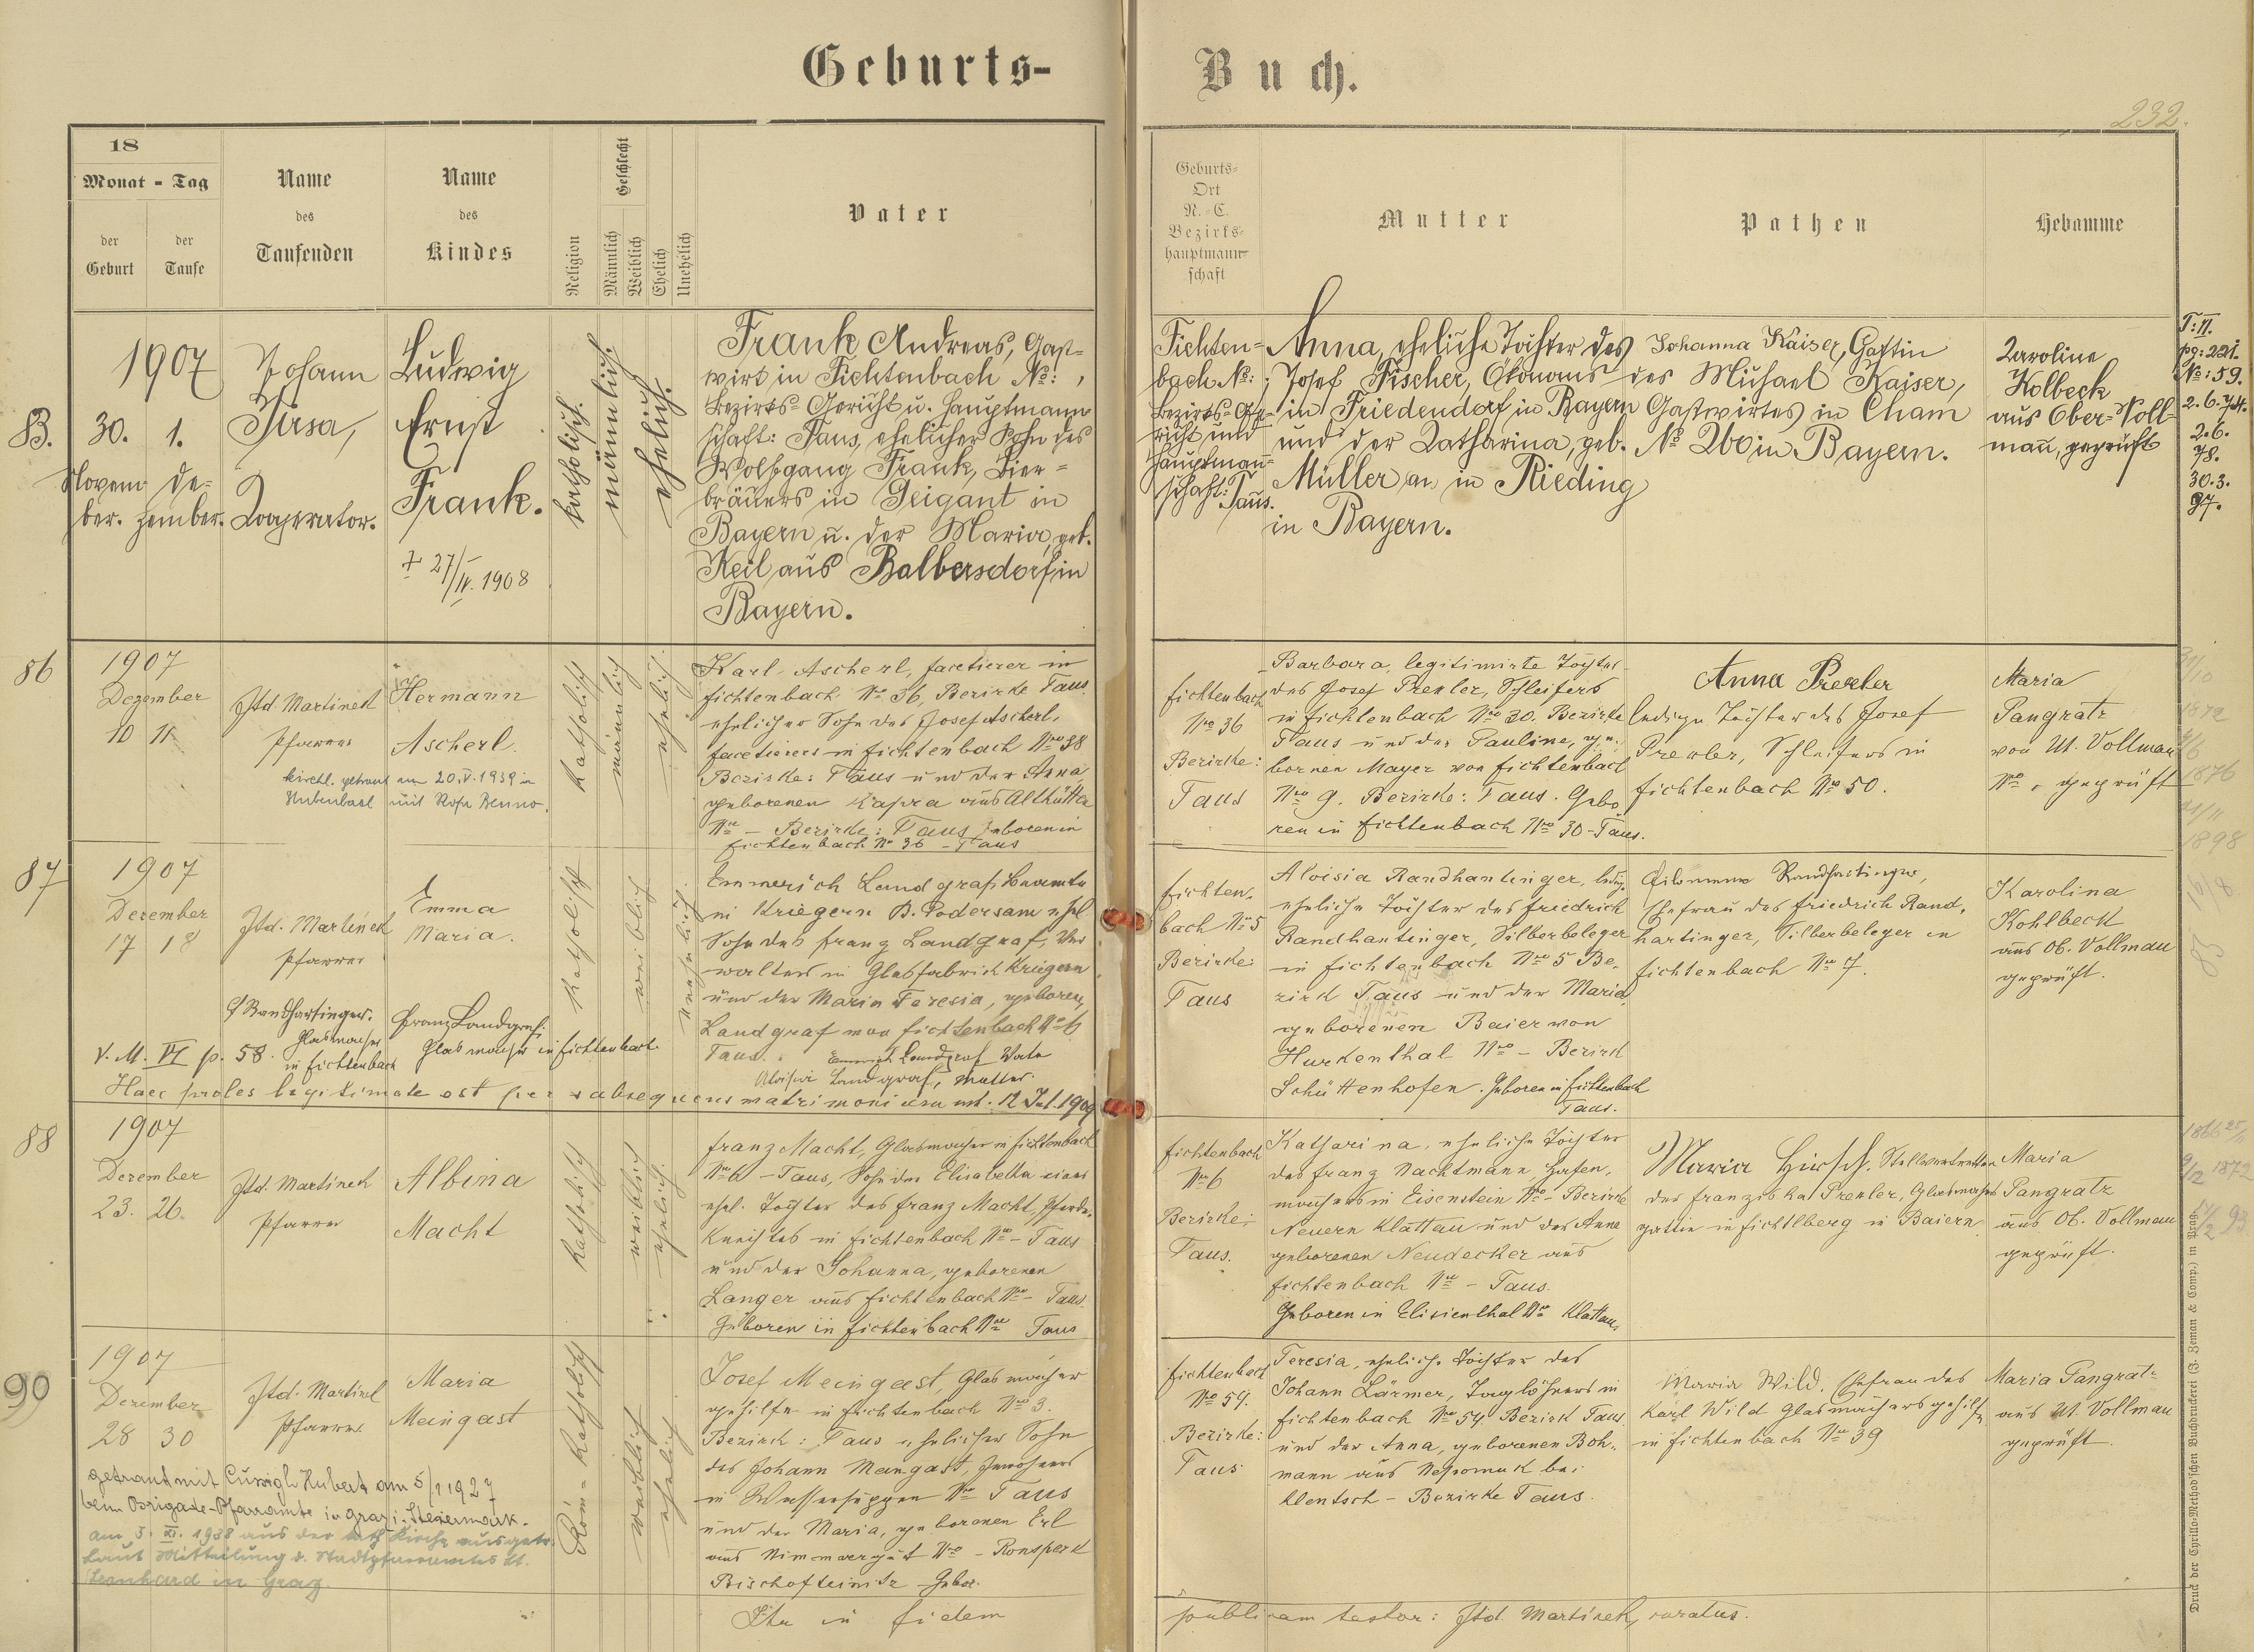 Geburts-
Buch.
232.
18
Monat - Tag
der Geburt
der Taufe
Name des Taufenden
Name des Kindes
Religion
Geschlecht
Männlich
Weiblich
Ehelich
Unehelich
Vater
Geburts-
Ort
N.-C.
Bezirks-
hauptmann-
schaft
Mutter
Pathen
Hebamme
1907
B.
30. 1.
Novem- De-
ber. zember.
Johann
Jirsa,
Cooperator.
Ludwig
Ernst
Frank.
† 27/IV. 1908
katholisch.
männlich.
ehelich.
Frank Andreas, Gast-
wirt in Fichtenbach No: ,
Bezirks-Gericht u. Hauptmann-
schaft: Taus, ehelicher Sohn des
Wolfgang Frank, Bier-
bräuers in Geigant in
Bayern u. der Maria, geb.
Keil, aus Balbersdorf in
Bayern.
Fichten-
bach No: ;
Bezirks-Ge-
richt und
Hauptman-
schaft: Taus.
Anna, eheliche Tochter des
Josef Fischer, Ökonoms
in Friedendorf in Bayern
und der Katharina, geb.
Müller, in Rieding
in Bayern.
Johanna Kaiser, Gattin
des Michael Kaiser,
Gastwirtes in Cham
No 260 in Bayern.
Karoline
Kolbeck
aus Ober-Voll-
mau, geprüft
T: II.
pg: 221.
No: 59.
2.6.74.
2.6.
78.
30.3.
97.
86
1907
Dezember
10 11
Jtd. Martinek
Pfarrer
Hermann
Ascherl
kirchl. getraut am 20.V.1939 in
mit Rosa Benno.
katholisch
männlich
ehelich
Karl Ascherl, facetierer in
Fichtenbach No 36, Bezirke Taus
ehelicher Sohn des Josef Ascherl,
facetierers in Fichtenbach No 38
Bezirke: Taus und der Anna
geborenen Kapra aus Althütte
No - Bezirke: Taus geboren in
Fichtenbach No 36 - Taus
Fichtenbach
No 36
Bezirke:
Taus
Barbara, legitimirte Tochter
des Josef Prexler, Schleifers
in Fichtenbach No 30. Bezirke
Taus und der Pauline, ge-
bornen Mayer von Fichtenbach
No 9. Bezirke: Taus. Gebo
ren in Fichtenbach No 30 - Taus.
Anna Prexler
ledige Tochter des Josef
Prexler, Schleifers in
Fichtenbach No 50.
Maria
Pangratz
von U. Vollmau
No , geprüft
1872
1876
1898
87
1907
Dezember
17 18
Jtd. Martinek
Pfarrer
Emma
Maria.
katholisch
weiblich
unehelich
Emmerich Landgraf, Beamte
in Kriegern B. Podersam ehel
Sohn des Franz Landgraf, Ver
walters in Glasfabrik Kriegern
und der Maria Teresia, geboren
Landgraf von Fichtenbach No 6
Taus.
Emmerich Landgraf Vater
Aloisia Landgraf, Mutter.
Randhartinger.
Glasmacher
in Fichtenbach
Franz Landgraf.
Glasmacher in Fichtenbach
V. M. VI p. 58.
Haec proles legitimate est per subsequens matrimonium ut. 12 Jul. 1909
Fichten-
bach No 5
Bezirke:
Taus
Aloisia Randhartinger, ledige
eheliche Tochter des Friedrich
Randhartinger, Silberbeleger
in Fichtenbach No 5 Be-
zirk Taus und der Maria
geborenen Baier von
Hurkenthal No - Bezirk
Schüttenhofen. Geboren in Fichtenbach
Taus.
Filomena Randhartinger,
Ehefrau des Friedrich Rand-
hartinger, Silberbeleger in
Fichtenbach No 7.
Karolina
Kohlbeck
aus Ob. Vollmau
geprüft.
88
1907
Dezember
23. 26.
Jtd. Martinek
Pfarrer
Albina
Macht
katholisch
weiblich
ehelich
Franz Macht, Glasmacher in Fichtenbach
No 6 - Taus, Sohn der Elisabetha einer
ehel. Tochter des Franz Macht, Pferde-
knechtes in Fichtenbach No - Taus
und der Johanna, geborenen
Langer aus Fichtenbach No - Taus.
Geboren in Fichtenbach No Taus
Fichtenbach
No 6
Bezirke:
Taus.
Katharina, eheliche Tochter
des Franz Nachtmann, Hafen-
machers in Eisenstein No - Bezirke
Neuern Klattau und der Anna
geborenen Neudecker aus
Fichtenbach No - Taus.
Geboren in Elisienthal No Klattau
Maria Hirsch, Stellvertreterin
der Franziska Prexler, Glasmachers
gattin in Fichtlberg in Baiern
Maria
Pangratz
aus Ob. Vollmau
geprüft.
1872
90
1907
Dezember
28 30
Jtd. Martinek
Pfarrer
Maria
Meingast
Röm-katholisch
weiblich
ehelich
Josef Meingast, Glasmacher
gehilfe in Fichtenbach No 3.
Bezirk: Taus ehelicher Sohn
des Johann Meingast, Inwohners
in Wassersuppen No Taus
und der Maria, geborenen Erl
aus Nimmvorgut No - Ronsperk
Bischofteinitz Gebor.
getraut mit Hubert am 5/1 1927
beim Brigade-Pfarramte in Graz i. Steiermark.
am 5. XI. 1938 aus der kath Kirche ausgetr.
laut Mitteilung d. Stadtpfarramtes St.
Leonhard in Graz.
Fichtenbach
No 54.
Bezirke:
Taus
Teresia, eheliche Tochter des
Johann Lärmer, Taglöhners in
Fichtenbach No 54 Bezirk Taus
und der Anna, geborenen Boh-
mann aus Nepomuk bei
Klentsch - Bezirke Taus.
Maria Wild, Ehefrau des
Karl Wild Glasmachersgehilfe
in Fichtenbach No 39
Maria Pangratz
aus U. Vollmau
geprüft.
Ita in fidem
publicam testor: Jtd. Martinek, curatus.
Druck der Cyrillo-Method'schen Buchdruckerei (J. Zeman & Comp.) in Prag.